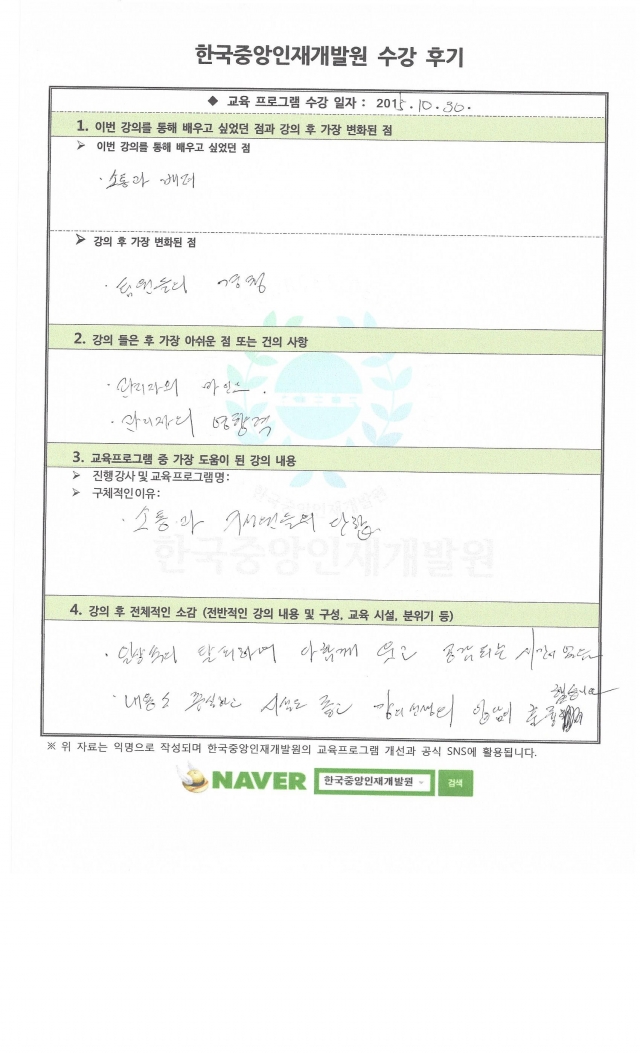 한국중앙인재개발원 수강 후기
◆ 교육 프로그램 수강 일자 : 2015.10.30.
1. 이번 강의를 통해 배우고 싶었던 점과 강의 후 가장 변화된 점
➢ 이번 강의를 통해 배우고 싶었던 점
· 소통과 배려
➢ 강의 후 가장 변화된 점
· 팀원들의 경청
2. 강의 들은 후 가장 아쉬운 점 또는 건의 사항
· 관리자의 마인드.
· 관리자의 영향력
3. 교육프로그램 중 가장 도움이 된 강의 내용
➢ 진행강사 및 교육프로그램명:
➢ 구체적인이유:
· 소통과 직원들의 단합
한국중앙인재개발원
한국중앙인재개발원
4. 강의 후 전체적인 소감 (전반적인 강의 내용 및 구성, 교육 시설, 분위기 등)
· 일상속의 탈피하며 다함께 웃고 공감되는 시간이
· 내용도 충실하고 시설도 좋고 강의선생의 입담이
※ 위 자료는 익명으로 작성되며 한국중앙인재개발원의 교육프로그램 개선과 공식 SNS에 활용됩니다.
NAVER 한국중앙인재개발원 검색